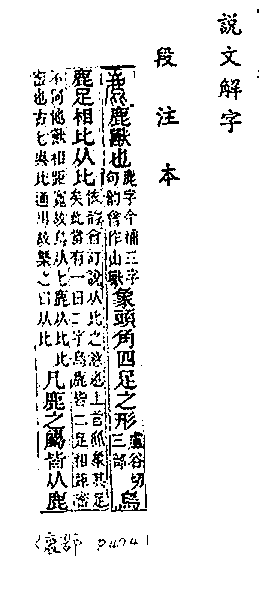 說文解字
段注本
鹿獸也鹿字今補三字句韵會作山獸象頭角四足之形盧谷切三部鳥
鹿足相比从比依韵會訂說从比之意也上言既象其足矣此當有一曰二字鳥鹿皆二足相距密
不同他獸相距寬故鳥从匕鹿从比比密也古匕與比通用故槩之曰从比凡鹿之屬皆从鹿
(鹿部 P474)